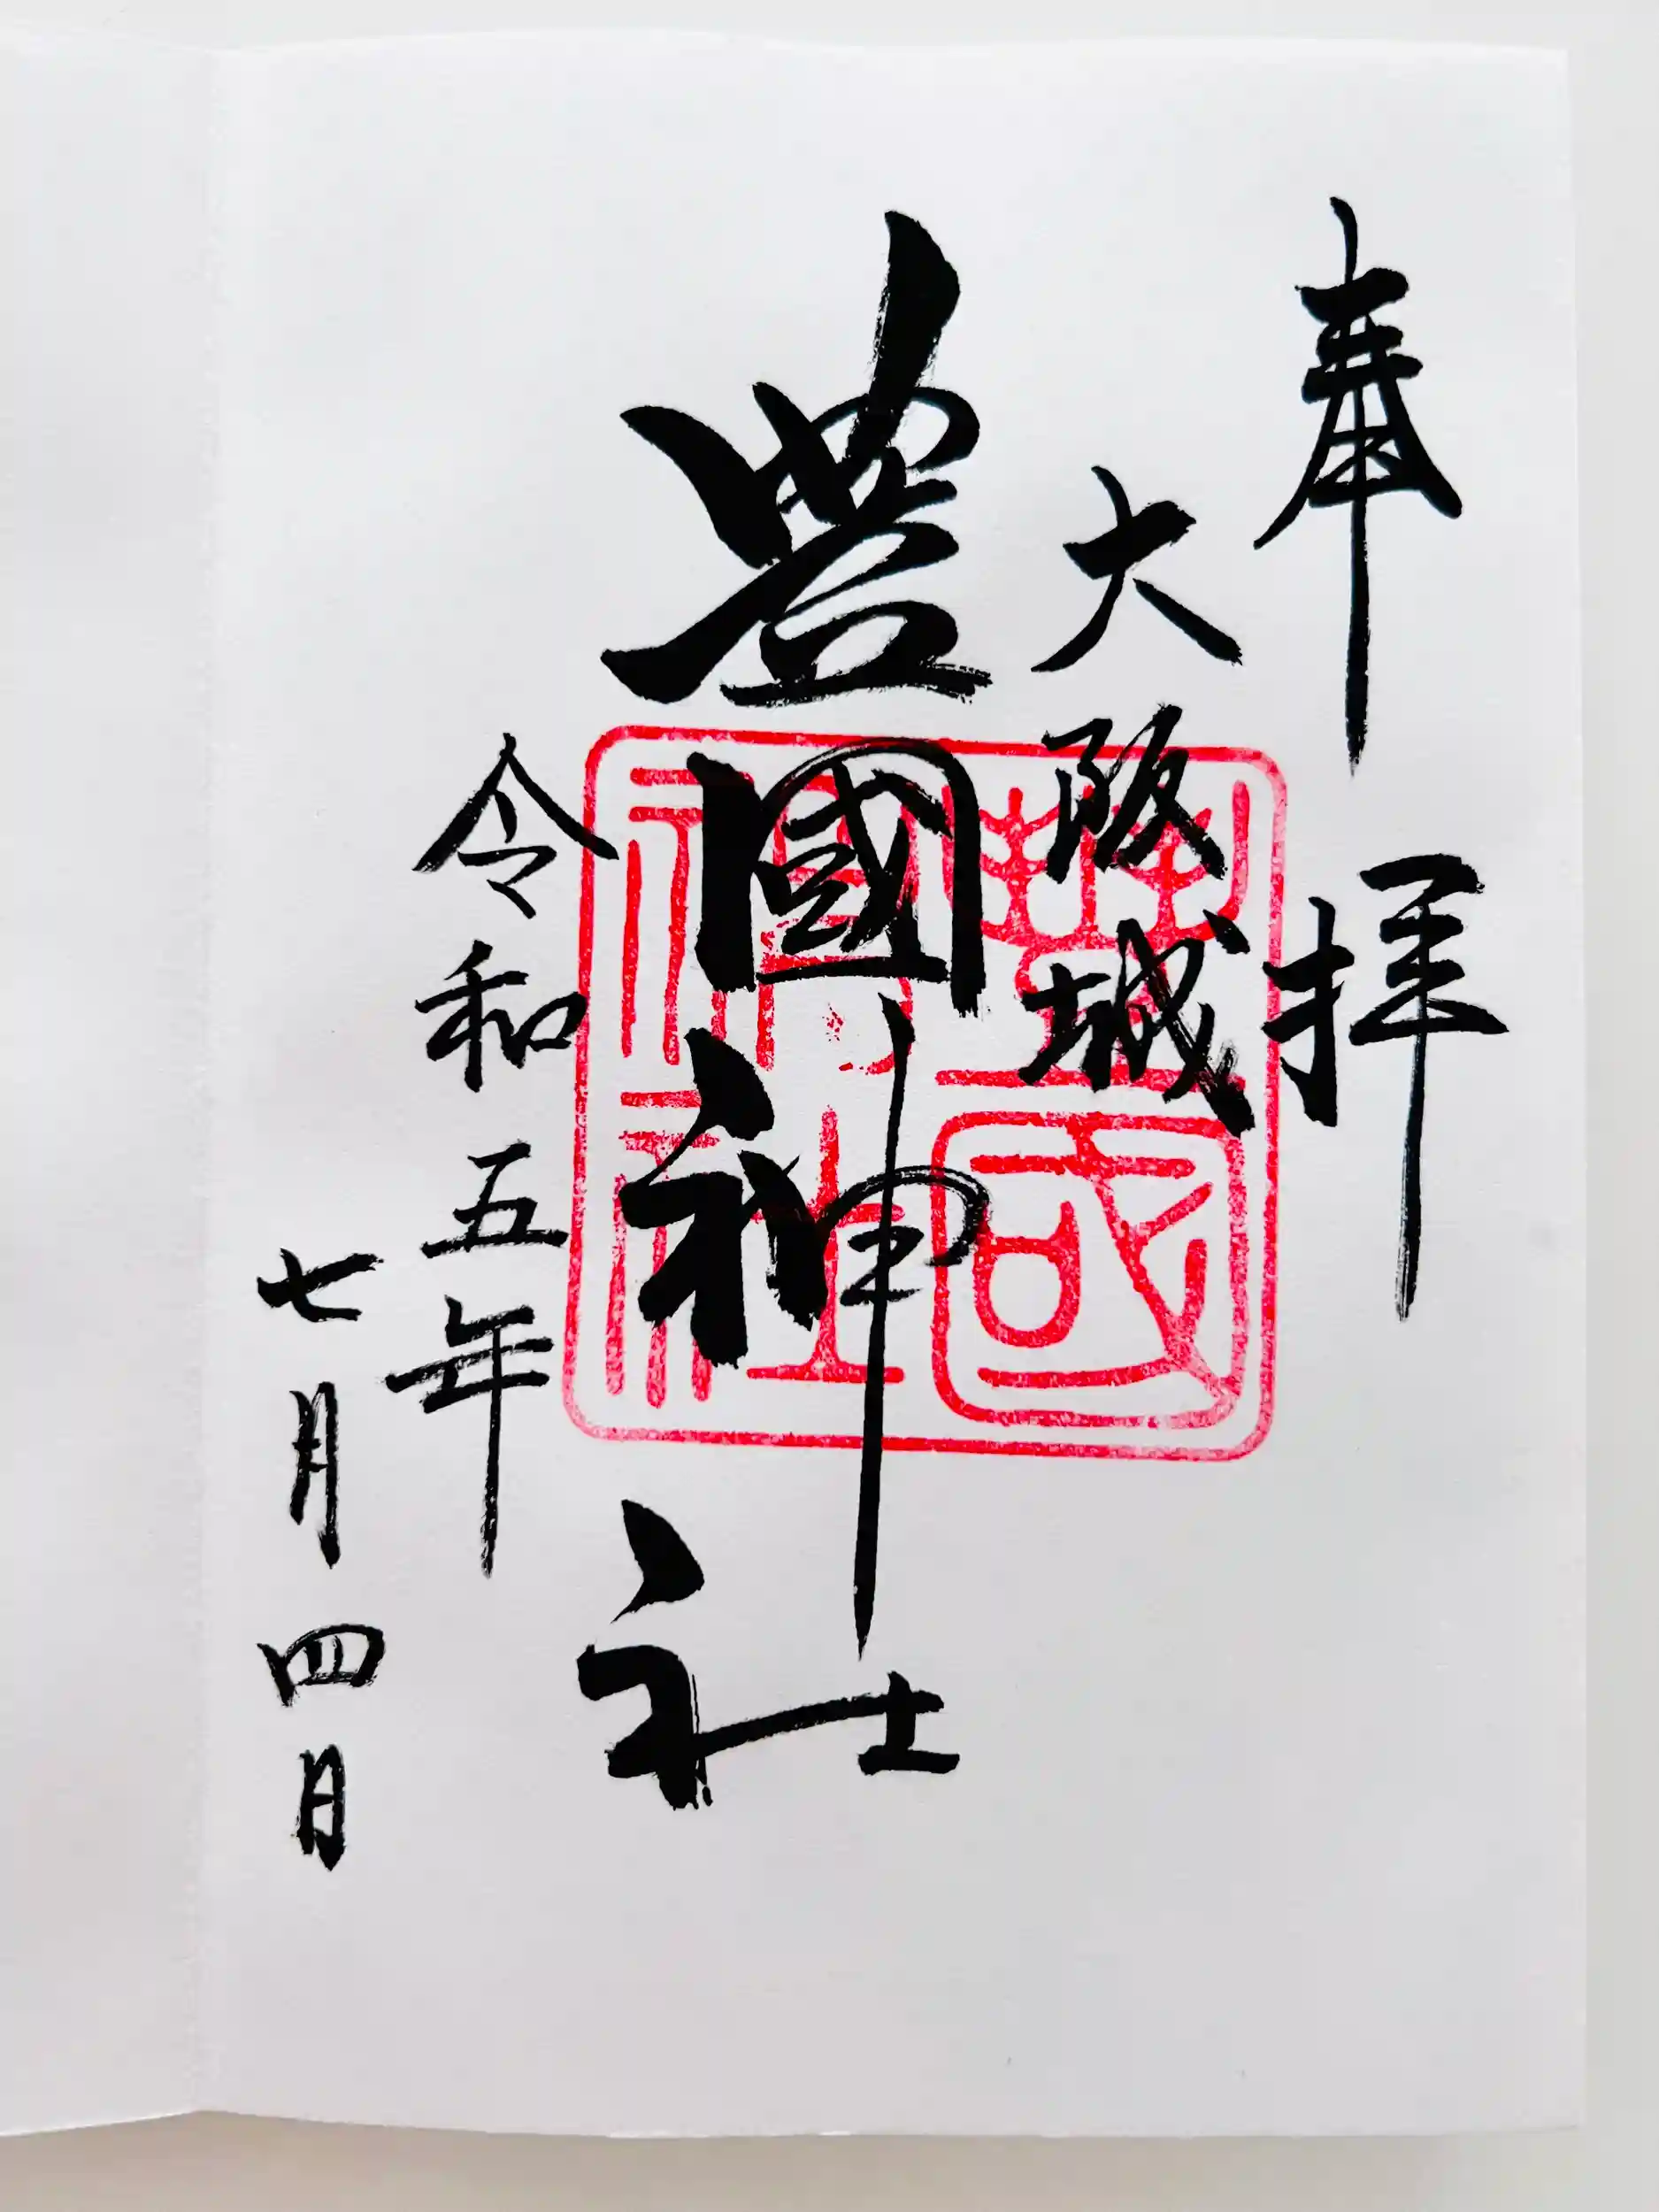 奉拝
大阪城
豊國神社
令和五年
七月四日
豐國神社